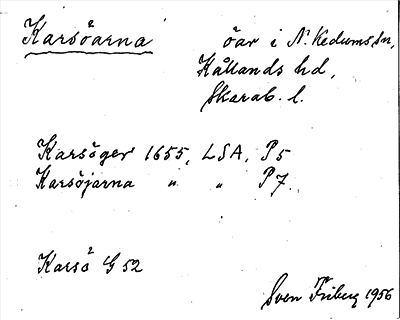 Karsöarna² öar i N. Kedums sn,
Kållands hd,
Skarab. l.
Karsöger 1655, LSA, P5
Karsöjarna " " P7.
Karsö² G 52
Sven Friberg 1956